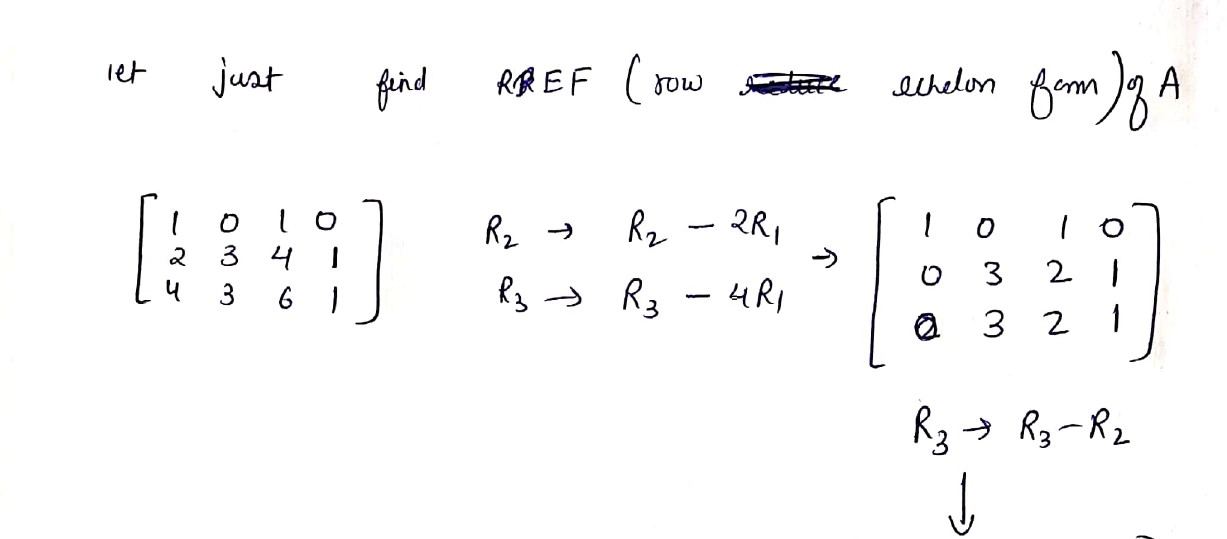 let just find RREF (row echelon form) of A
[1 0 1 0
2 3 4 1
4 3 6 1]
R₂ → R₂ - 2R₁
R₃ → R₃ - 4R₁
→
[1 0 1 0
0 3 2 1
0 3 2 1]
R₃ → R₃ - R₂
↓